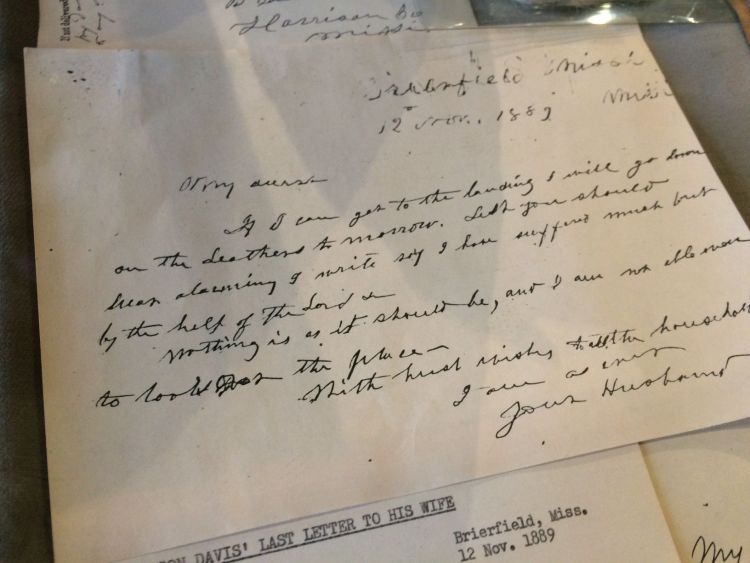 Harrison Co
Missi
Brierfield Missi
12 Nov. 1889
My dearest
If I can get to the landing I will go down
on the Leathers to morrow. Lest you should
hear alarming I write say I have suffered much but
by the help of the Lord &
Nothing is as it should be, and I am not able even
to look at the place—
With best wishes to all the household
I am as ever
Your Husband
ON DAVIS' LAST LETTER TO HIS WIFE
Brierfield, Miss.
12 Nov. 1889
My